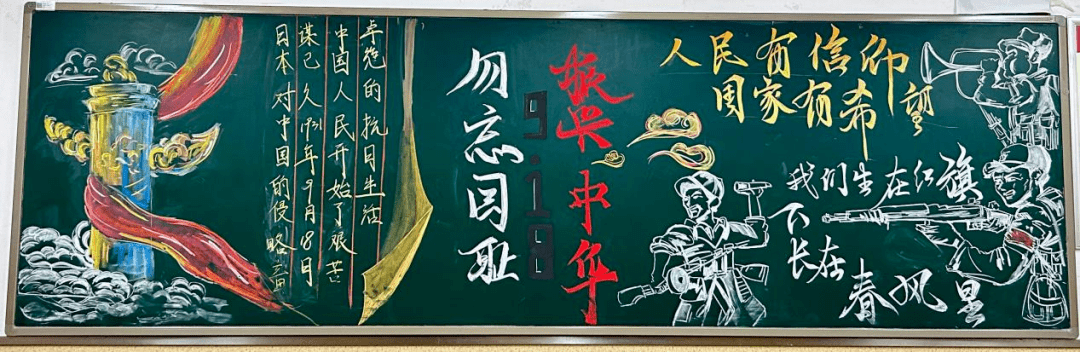 日本对中国的侵略蓄
谋已久1931年9月18日
中国人民开始了艰苦
卓绝的抗日生活
勿忘国耻
9.18
振兴中华
人民有信仰
国家有希望
我们生在红旗
下
长在
春风里